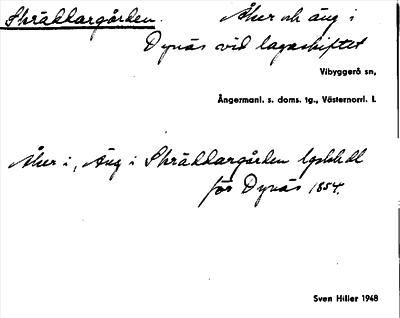 Skräddargården. Åker och äng i
Dynäs vid lagaskiftet
Vibyggerå sn,
Ångermanl. s. doms. tg., Västernorrl. l.
Åker i, Äng i Skräddargården lgskhdl
för Dynäs 1854.
Sven Hiller 1948